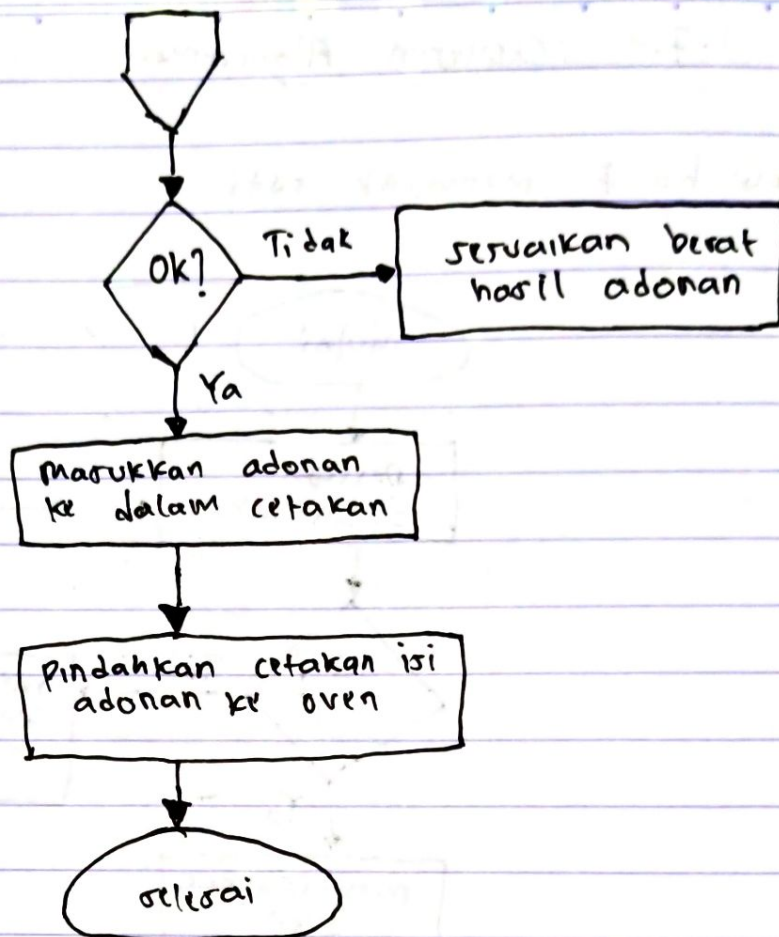 Ok?
Tidak
sesuaikan berat
hasil adonan
Ya
masukkan adonan
ke dalam cetakan
pindahkan cetakan isi
adonan ke oven
selesai